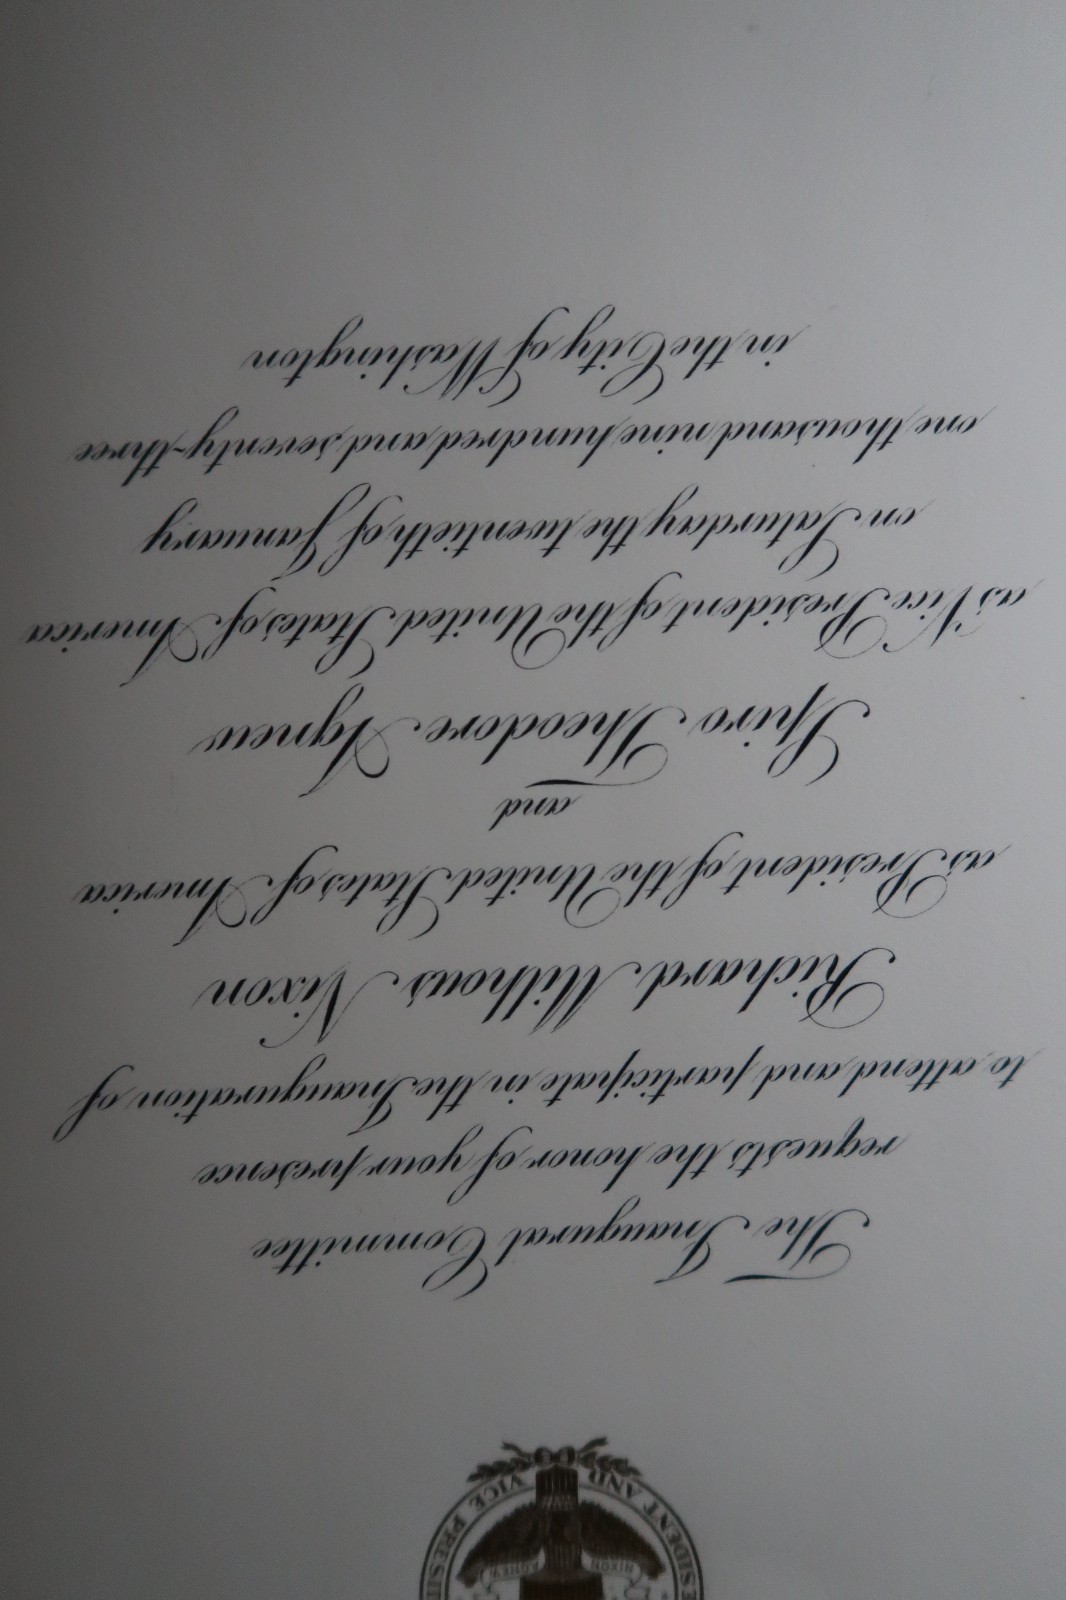 SIDENT AND VICE PRESID
NIXON AGNEW
The Inaugural Committee
requests the honor of your presence
to attend and participate in the Inauguration of
Richard Milhous Nixon
as President of the United States of America
and
Spiro Theodore Agnew
as Vice President of the United States of America
on Saturday the twentieth of January
one thousand nine hundred and seventy-three
in the City of Washington